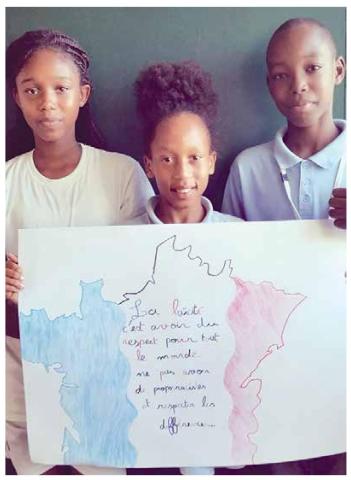 La laïcité
c'est avoir du
respect pour tout
le monde
ne pas avoir
de propos racistes
et respecter les
différence...